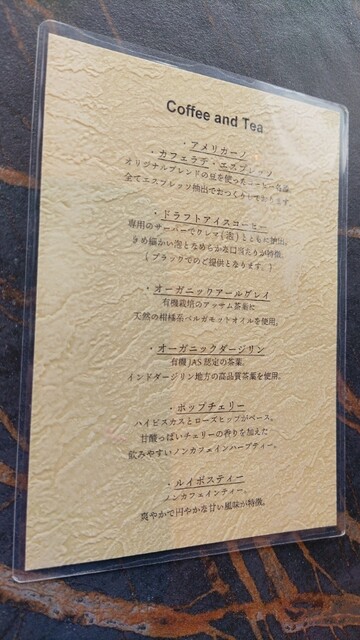 Coffee and Tea
・アメリカーノ
・カフェラテ・エスプレッソ
オリジナルブレンドの豆を使ったコーヒー各種
全てエスプレッソ抽出でおつくりしております。
・ドラフトアイスコーヒー
専用のサーバーでクレマ(泡)とともに抽出。
きめ細かい泡となめらかな口当たりが特徴。
(ブラックでのご提供となります。)
・オーガニックアールグレイ
有機栽培のアッサム茶葉に
天然の柑橘系ベルガモットオイルを使用。
・オーガニックダージリン
有機JAS認定の茶葉。
インドダージリン地方の高品質茶葉を使用。
・ポップチェリー
ハイビスカスとローズヒップがベース。
甘酸っぱいチェリーの香りを加えた
飲みやすいノンカフェインハーブティー。
・ルイボスティー
ノンカフェインティー。
爽やかで円やかな甘い風味が特徴。